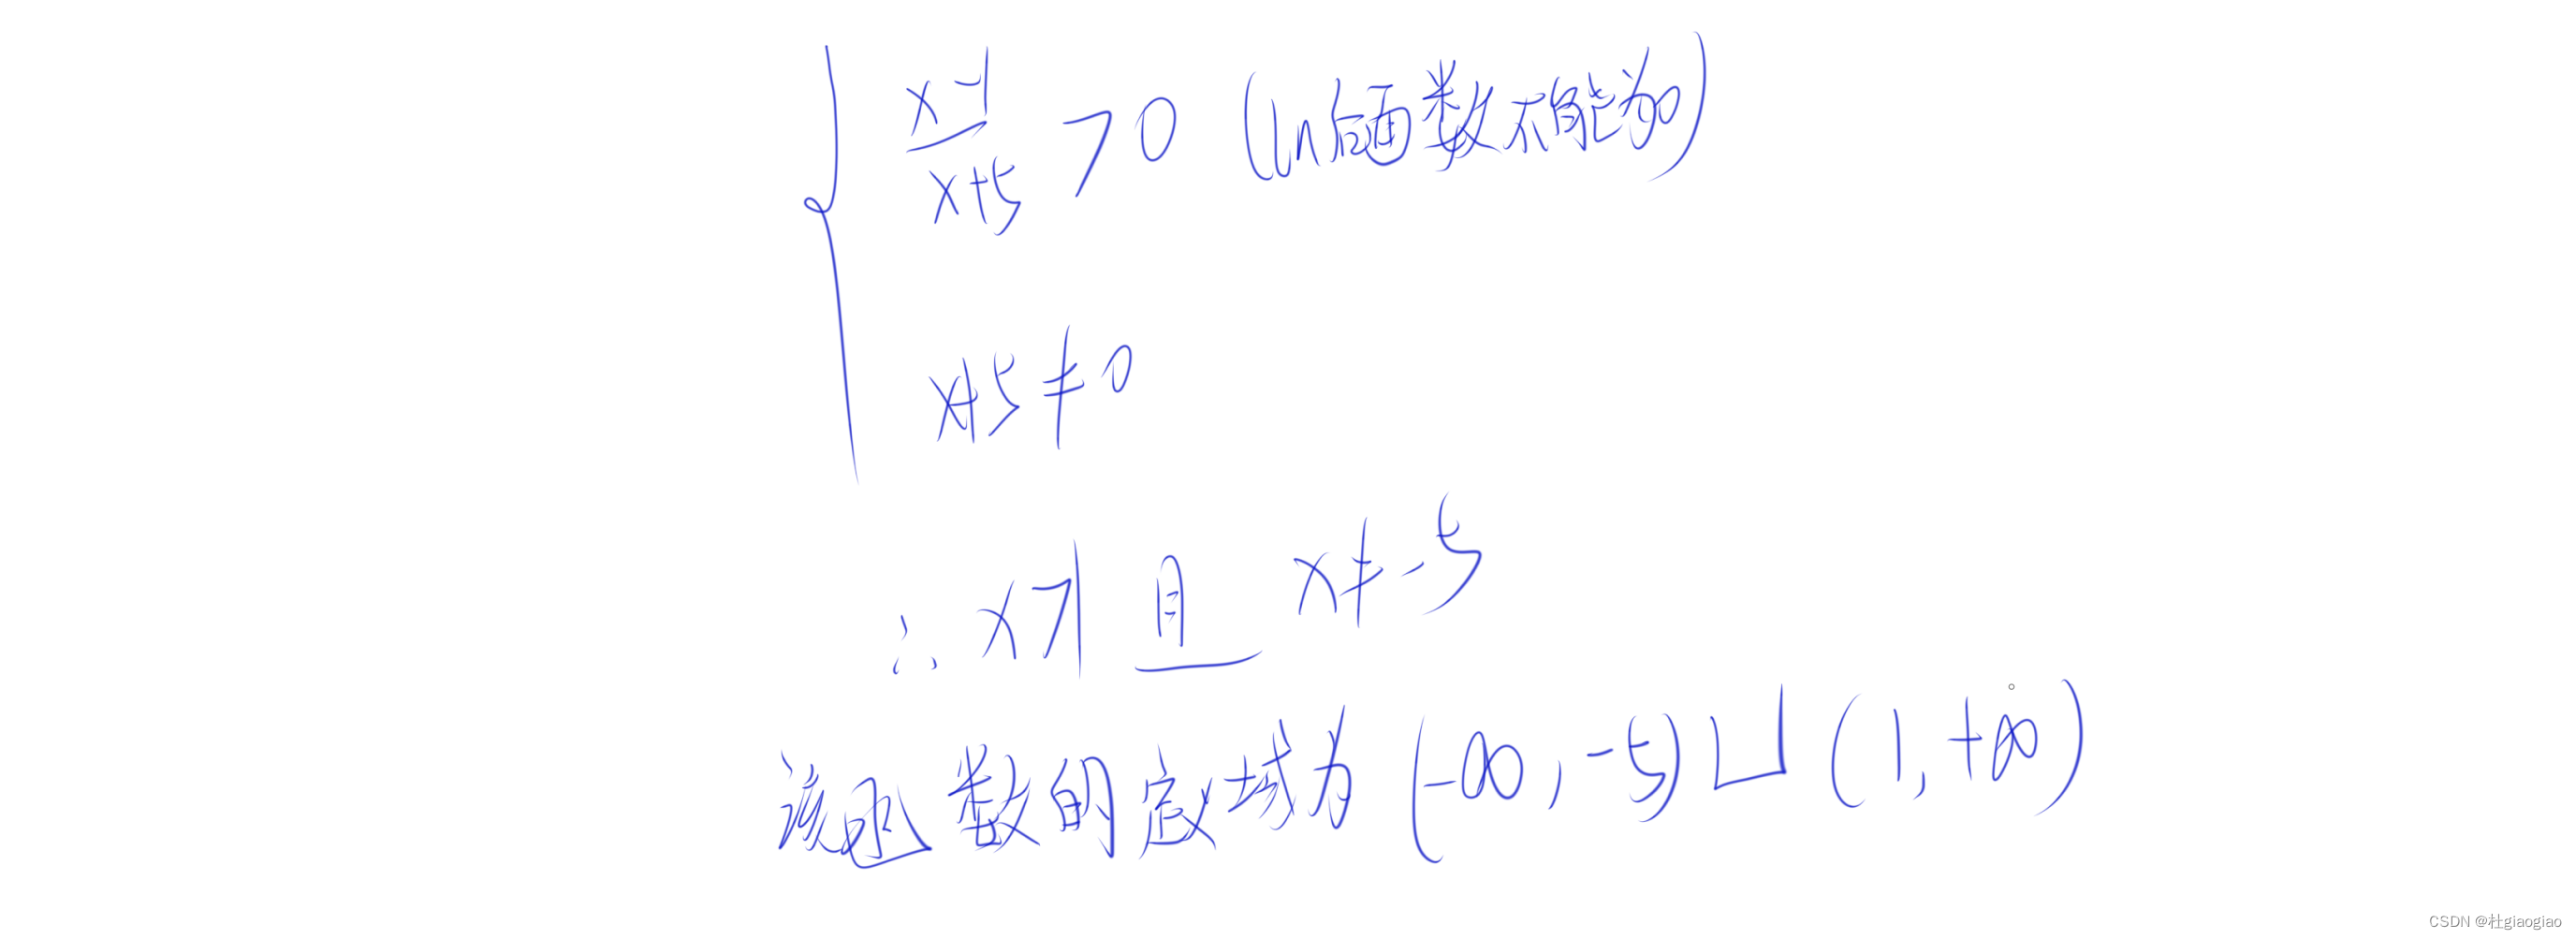 x-1/x+5 > 0 (ln后面数不能为0)
x+5≠0
∴ x>1 且 x≠-5
该函数的定义域为 (-∞, -5) ∪ (1, +∞)
CSDN @杜giaogiao